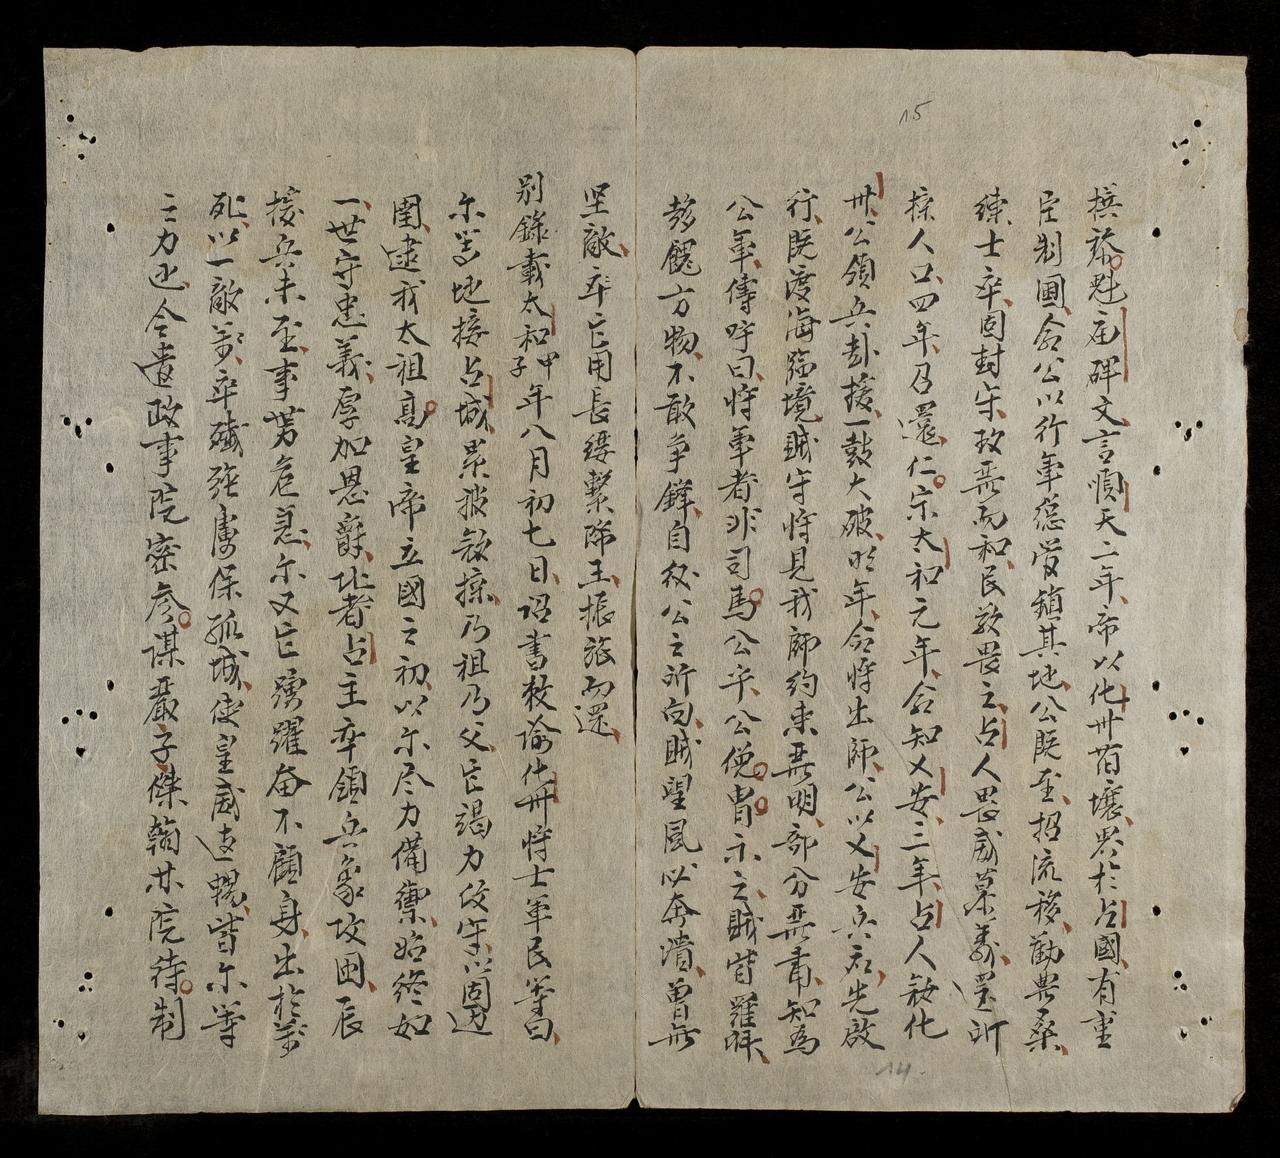 15
撰蔡魁庙碑文言順天二年帝以化卅苔壤界於占國有重
臣制圃命公以行軍總管鎮其地公既至招流移勸畢桑
練士卒固封守政無而和民敬畏之占人畏威慕義還所
掠人口四年召還仁宗太和元年命知乂安三年占人寇化
卅公領兵赴援一鼓大破明年命將出師公以乂安兵為先啟
行既渡海臨境賊守將見我師約束無明部分無肅知為
公軍傳呼曰將軍者非司馬公乎公俛胄示之賊皆羅拜
趍餽方物不敢爭鋒自後公之所向賊望風以奔潰曾無
坚敵卒它用長纓繫降王振旅而還
別錄載太和甲子年八月初七日詔書敕諭化卅將士軍民等曰
尔等地接占城累被寇掠乃祖乃父它竭力佼守以固边
圉逮我太祖高皇帝立國之初以尔尽力備禦始終如
一世守忠義厚加恩爵比者占主卒領兵象攻困辰
援兵未至事势危急尔又它踴躍奋不顧身出於萬
死以一敵萬卒殲強虜保孤城使皇威遠暢皆尔等
之力也今遣政事院密参謀嚴子傑翰林院待制
14.